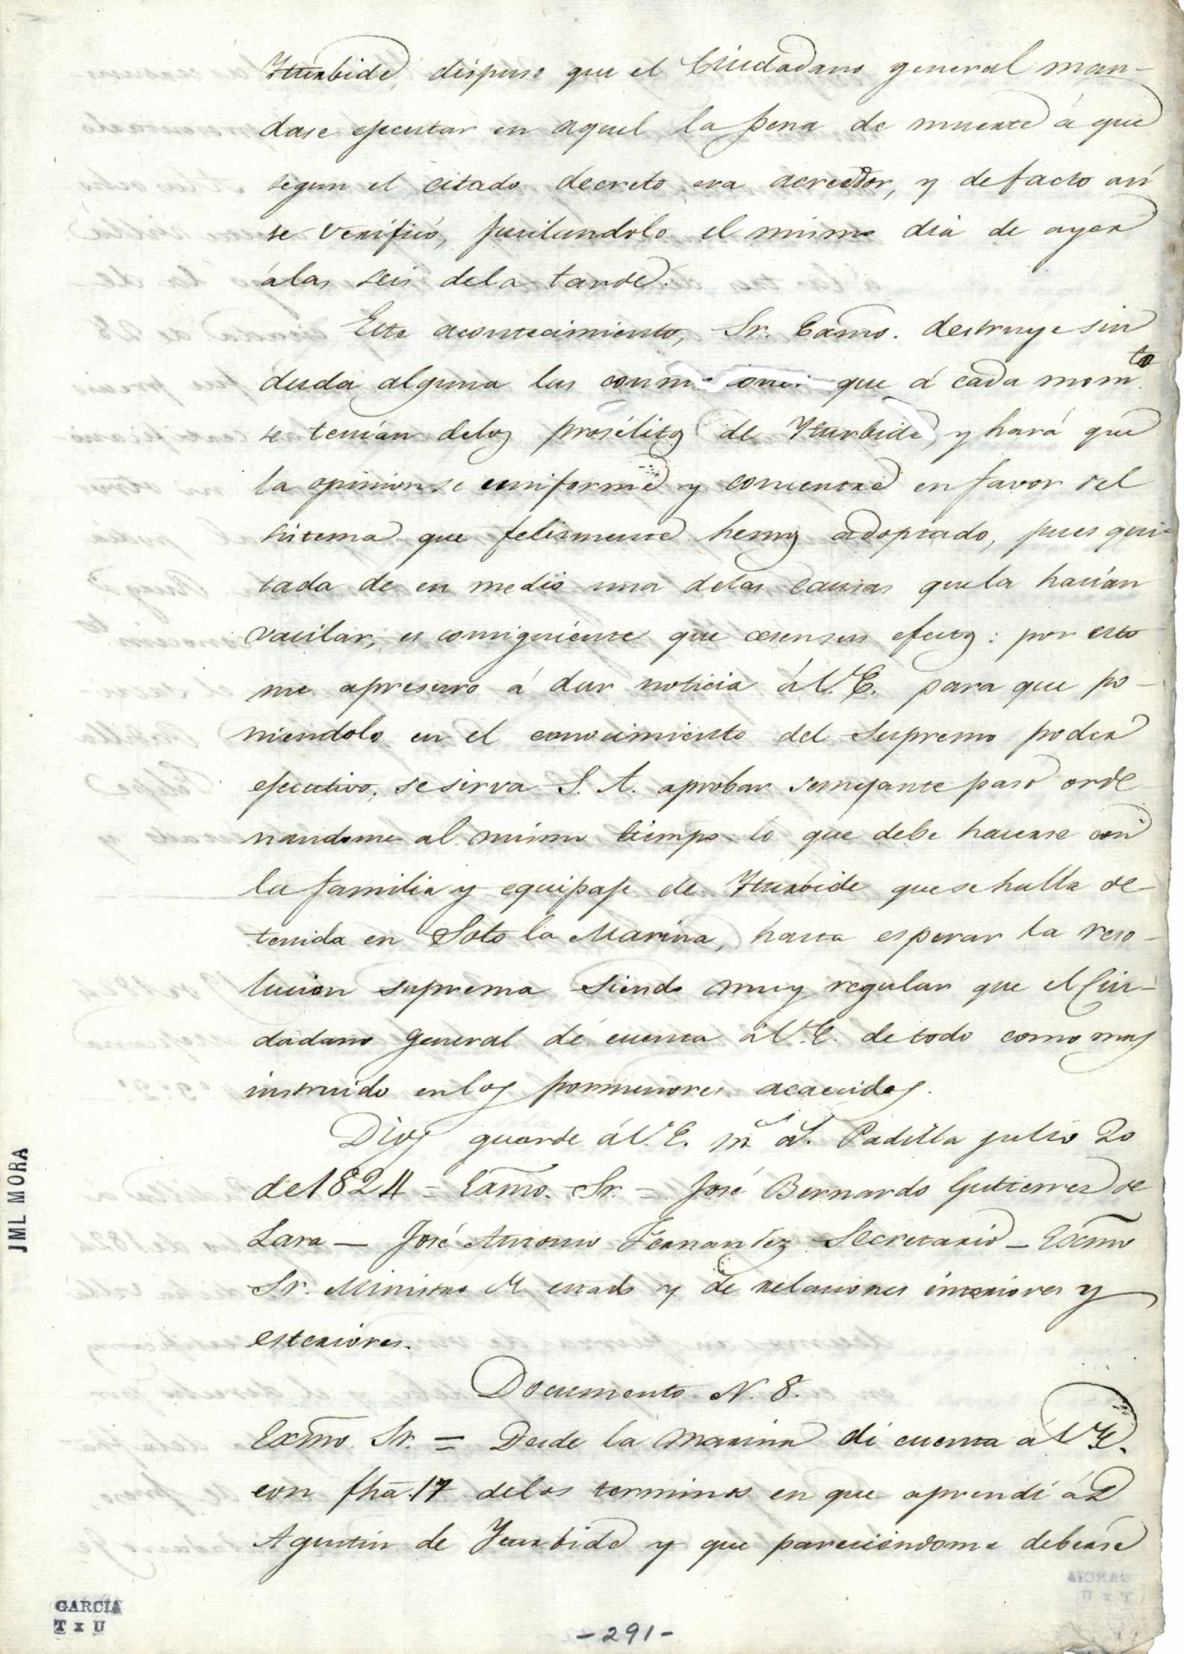 Iturbide, dispuso que el Ciudadano general man-
dase ejecutar en aquel la pena de muerte á que
segun el citado decreto era acreedor, y de facto así
se verificó, fusilandolo el mismo dia de ayer
á las seis de la tarde.
Este acontecimiento, Sr. Exmo. destruye sin
duda alguna las que á cada mom.to
se tenían delos prosélitos de Iturbide y hará que
la opinion se uniforme y concentre en favor del
sistema que felismente hemos adoptado, pues qui-
tada de en medio una delas causas que la hacian
vacilar, es consiguiente que cesen sus efectos: por esto
me apresuro á dar noticia á V. E. para que po-
niendolo en el conocimiento del Supremo poder
ejecutivo, se sirva S. A. aprobar semejante paso orde
nandome al mismo tiempo lo que debe hacerse con
la familia y equipaje de Iturbide que se halla de-
tenida en Soto la Marina, hasta esperar la reso-
lucion suprema siendo muy regular que el Ciu-
dadano general dé cuenta á V. E. de todo como mas
instruido en los pormenores acaecidos.
Dios guarde á V. E. m. a.s Padilla julio 20
de 1824 = Exmo. Sr. = José Bernardo Gutierres de
Lara — José Antonio Fernandez Secretario — Exmo
Sr. Ministro de estado y de relaciones interiores y
esteriores.
Documento N. 8.
Exmo. Sr. = Desde la marina di cuenta á V. E.
con fha. 17 delos terminos en que aprendí á D
Agustin de Iturbide y que pareciendome deberse
JML MORA
GARCIA
T x U
-291-